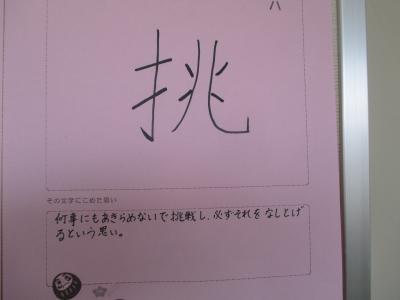 挑
その文字にこめた思い
何事にもあきらめないで挑戦し、必ずそれをなしとげ
るという思い。